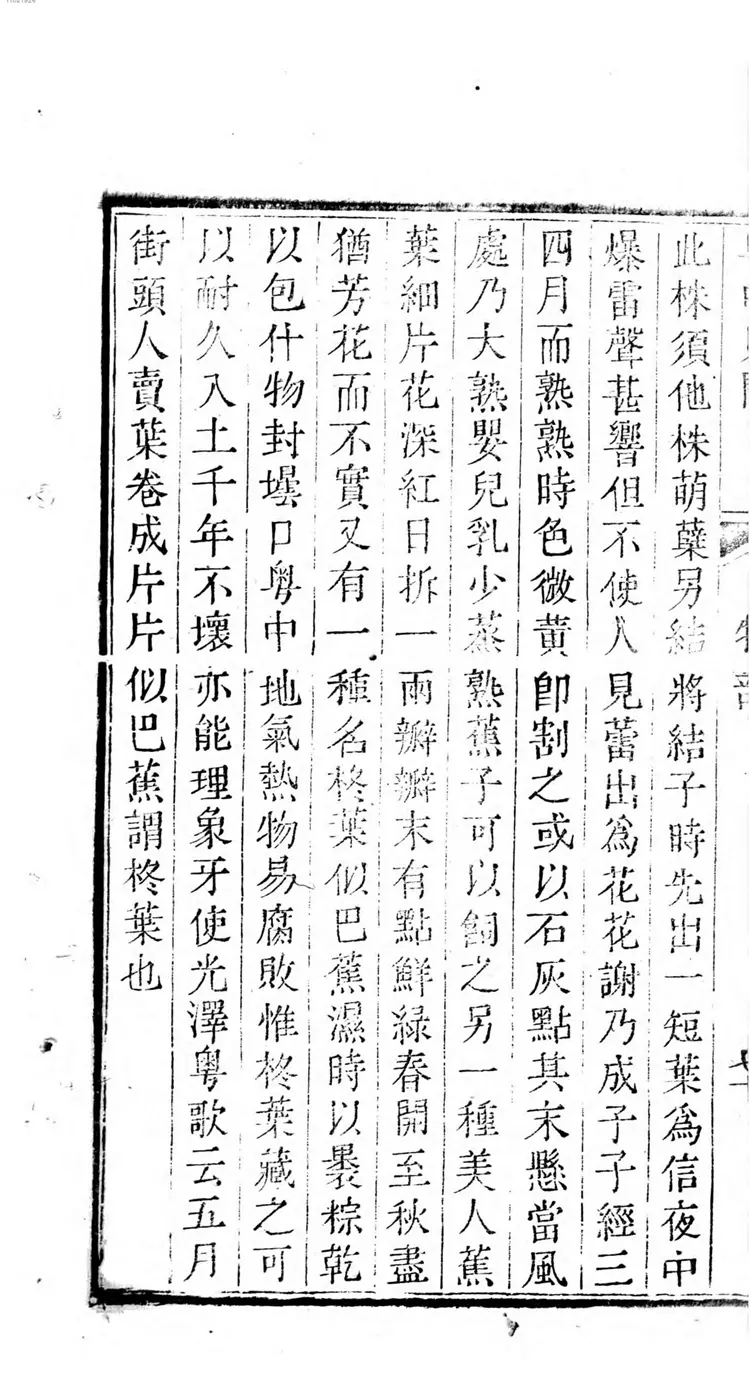 此株須他株萌蘖另結將結子時先出一短葉為信夜中
爆雷聲甚響但不使人見蕾出為花花謝乃成子子經三
四月而熟熟時色微黃卽割之或以石灰點其末懸當風
處乃大熟嬰兒乳少蒸熟蕉子可以飼之另一種美人蕉
葉細片花深紅日拆一兩瓣瓣末有點鮮綠春開至秋盡
猶芳花而不實又有一種名柊葉似巴蕉濕時以裹粽乾
以包什物封壜口粵中地氣熱物易腐敗惟柊葉藏之可
以耐久入土千年不壞亦能理象牙使光澤粵歌云五月
街頭人賣葉卷成片片似巴蕉謂柊葉也